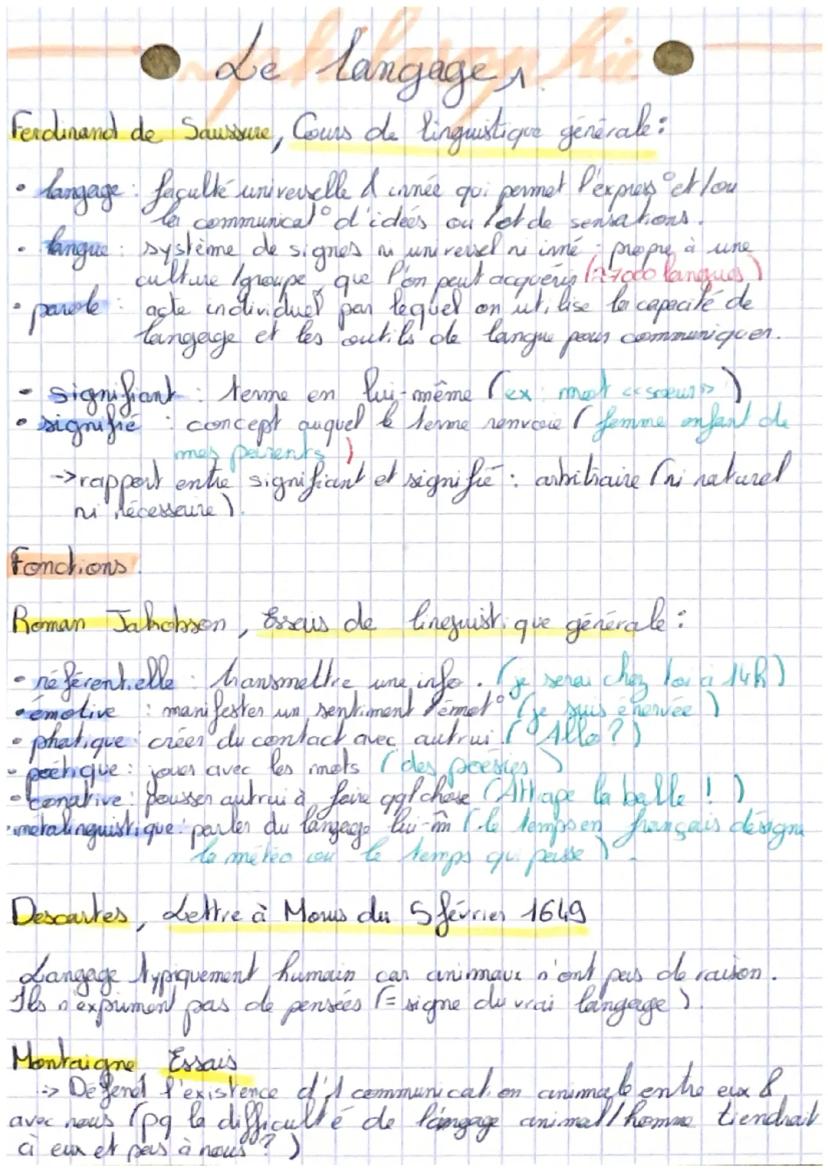 philosophie
Le langage 1.
Ferdinand de Saussure, Cours de linguistique générale :
• langage : faculté universelle & innée qui permet l'express° et/ou
la communicat° d'idées ou /et de sensations.
• langue : système de signes ni universel ni inné : propre à une
culture /groupe, que l'on peut acquérir (≈7000 langues)
• parole : acte individuel par lequel on utilise la capacité de
langage et les outils de langue pour communiquer.
• signifiant : terme en lui-même (ex : mot «soeur»)
• signifié : concept auquel le terme renvoie (femme enfant de
mes parents)
->rapport entre signifiant et signifié : arbitraire (ni naturel
ni nécessaire).
Fonctions.
Roman Jakobson, Essais de linguistique générale :
• référentielle : transmettre une info. (je serai chez toi à 14h)
• émotive : manifester un sentiment /émot° (je suis énervée)
• phatique : créer du contact avec autrui (" Allo ?)
• poétique : jouer avec les mots (des poésies)
• conative : pousser autrui à faire qql chose (Attrape la balle !)
• métalinguistique : parler du langage lui-m̂ (le temps en français désigne
la météo ou le temps qui passe).
Descartes, Lettre à Morus du 5 février 1649
Langage typiquement humain car animaux n'ont pas de raison.
Ils n'expriment pas de pensées (= signe du vrai langage).
Montaigne Essais
-> Défend l'existence d'1 communication animale entre eux &
avec nous (pq la difficulté de langage animal/homme tiendrait
à eux et pas à nous ?)